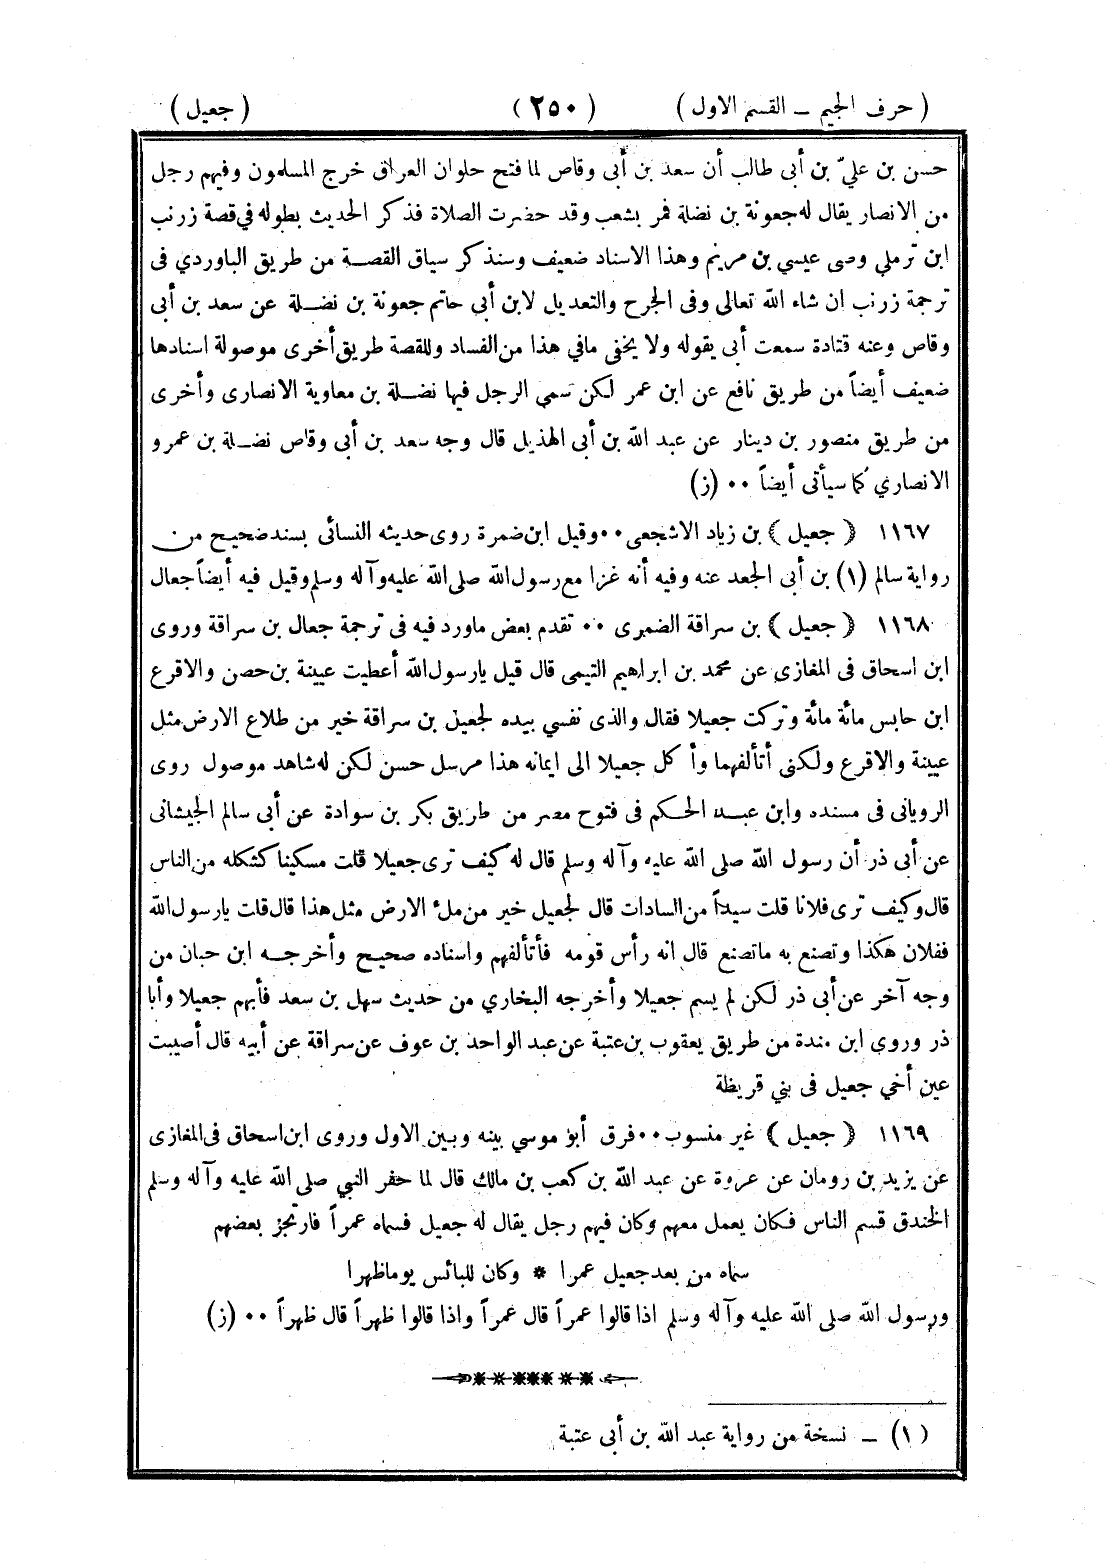 ( حرف الجيم ــ القسم الاول ) ( ٢٥٠ ) ( جعيل )
حسن بن علىّ بن أبى طالب أن سعد بن أبى وقاص لما فتح حلوان العراق خرج المسلمون وفيهم رجل
من الانصار يقال له جعونة بن نضلة فمر بشعب وقد حضرت الصلاة فذكر الحديث بطوله في قصة زرنب
ابن ثرملي وصى عيسي بن مريم وهذا الاسناد ضعيف وسنذكر سياق القصة من طريق الباوردي فى
ترجمة زرنب ان شاء الله تعالى وفى الجرح والتعديل لابن أبي حاتم جعونة بن نضلة عن سعد بن أبى
وقاص وعنه قتادة سمعت أبى يقوله ولا يخفى مافي هذا من الفساد وللقصة طريق أخرى موصولة اسنادها
ضعيف أيضاً من طريق نافع عن ابن عمر لكن سمي الرجل فيها نضلة بن معاوية الانصارى وأخرى
من طريق منصور بن دينار عن عبد الله بن أبى الهذيل قال وجه سعد بن أبى وقاص نضلة بن عمرو
الانصاري كما سيأتى أيضاً ٠٠ (ز)
١١٦٧ ( جعيل ) بن زياد الاشجعى ٠٠ وقيل ابن ضمرة روى حديثه النسائى بسند صحيح من
رواية سالم (١) بن أبى الجعد عنه وفيه أنه غزا مع رسول الله صلى الله عليه وآله وسلم وقيل فيه أيضاً جعال
١١٦٨ ( جعيل ) بن سراقة الضمرى ٠٠ تقدم بعض ماورد فيه فى ترجمة جعال بن سراقة وروى
ابن اسحاق فى المغازى عن محمد بن ابراهيم التيمى قال قيل يارسول الله أعطيت عيينة بن حصن والاقرع
ابن حابس مائة مائة وتركت جعيلا فقال والذى نفسي بيده لجعيل بن سراقة خير من طلاع الارض مثل
عيينة والاقرع ولكنى أتألفهما وأكل جعيلا الى ايمانه هذا مرسل حسن لكن له شاهد موصول روى
الرويانى فى مسنده وابن عبد الحكم فى فتوح مصر من طريق بكر بن سوادة عن أبى سالم الجيشانى
عن أبى ذر أن رسول الله صلى الله عليه وآله وسلم قال له كيف ترى جعيلا قلت مسكينا كشكله من الناس
قال وكيف ترى فلانا قلت سيداً من السادات قال لجعيل خير من ملء الارض مثل هذا قال قلت يارسول الله
ففلان هكذا وتصنع به ماتصنع قال انه رأس قومه فأتألفهم واسناده صحيح وأخرجه ابن حبان من
وجه آخر عن أبى ذر لكن لم يسم جعيلا وأخرجه البخاري من حديث سهل بن سعد فأبهم جعيلا وأبا
ذر وروى ابن مندة من طريق يعقوب بن عتبة عن عبد الواحد بن عوف عن سراقة عن أبيه قال أصيبت
عين أخي جعيل فى بني قريظة
١١٦٩ ( جعيل ) غير منسوب ٠٠ فرق أبو موسي بينه وبين الاول وروى ابن اسحاق فى المغازى
عن يزيد بن رومان عن عروة عن عبد الله بن كعب بن مالك قال لما حفر النبي صلى الله عليه وآله وسلم
الخندق قسم الناس فكان يعمل معهم وكان فيهم رجل يقال له جعيل فسماه عمراً فارتجز بعضهم
سماه من بعد جعيل عمرا * وكان للبائس يوما ظهرا
ورسول الله صلى الله عليه وآله وسلم اذا قالوا عمراً قال عمراً واذا قالوا ظهراً قال ظهراً ٠٠ (ز)
(١) ــ نسخة من رواية عبد الله بن أبى عتبة